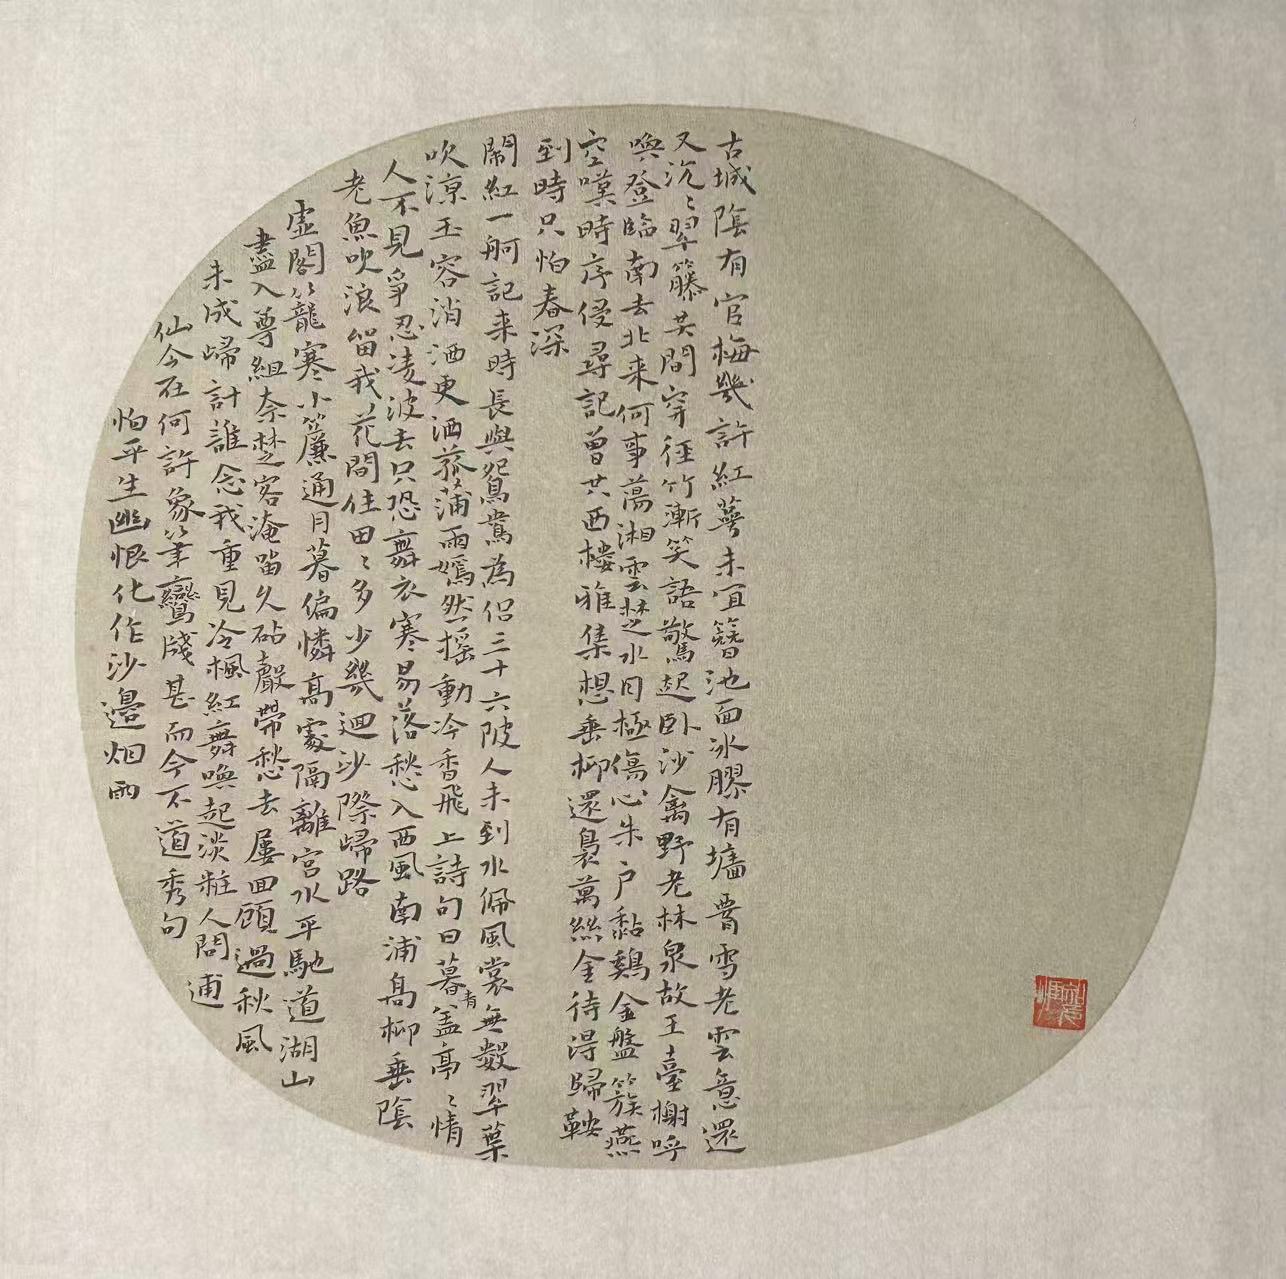 古城陰有官梅幾許紅萼未宜簪池面冰膠有墻腰雪老雲意還
又沉〻翠籐共閒穿徑竹漸笑語驚起卧沙禽野老林泉故王臺榭呼
喚登臨南去北来何事蕩湘雲楚水目極傷心朱户黏鷄金盤簇燕
空嘆時序侵尋記曾共西樓雅集想垂柳還裊萬絲金待得歸鞍
到時只怕春深
鬧紅一舸記来時長與鴛鴦為侣三十六陂人未到水佩風裳無數翠葉
吹涼玉容消酒更洒菰蒲雨嫣然摇動冷香飛上詩句日暮青盖亭〻情
人不見爭忍凌波去只恐舞衣寒易落愁入西風南浦高柳垂陰
老魚吹浪留我花間住田〻多少幾迴沙際歸路
虚閣籠寒小簾通月暮偏憐高處隔離宮水平馳道湖山
盡入尊俎奈楚客淹留久砧聲帶愁去屢回顧過秋風
未成歸計誰念我重見冷楓紅舞喚起淡粧人問逋
仙今在何許象筆鸞牋甚而今不道秀句
怕平生幽恨化作沙邊烟雨